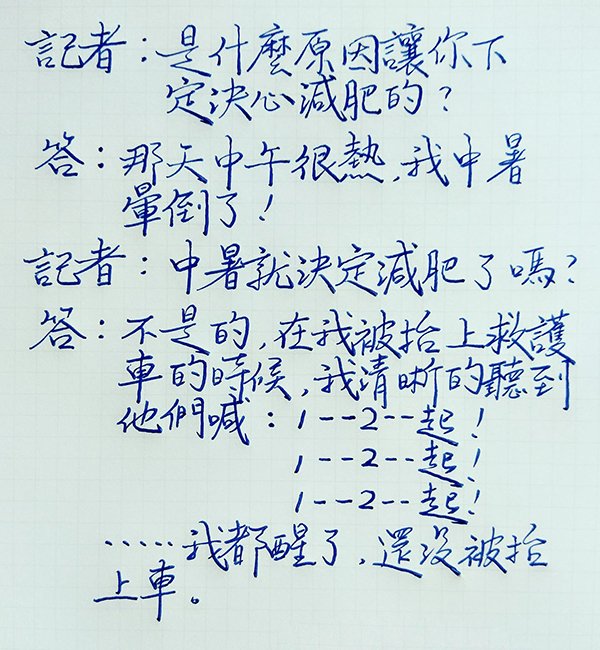 記者：是什麼原因讓你下
定決心減肥的？
答：那天中午很熱，我中暑
暈倒了！
記者：中暑就決定減肥了嗎？
答：不是的，在我被抬上救護
車的時候，我清晰的聽到
他們喊：1--2--起！
1--2--起！
1--2--起！
……我都醒了，還沒被抬
上車。